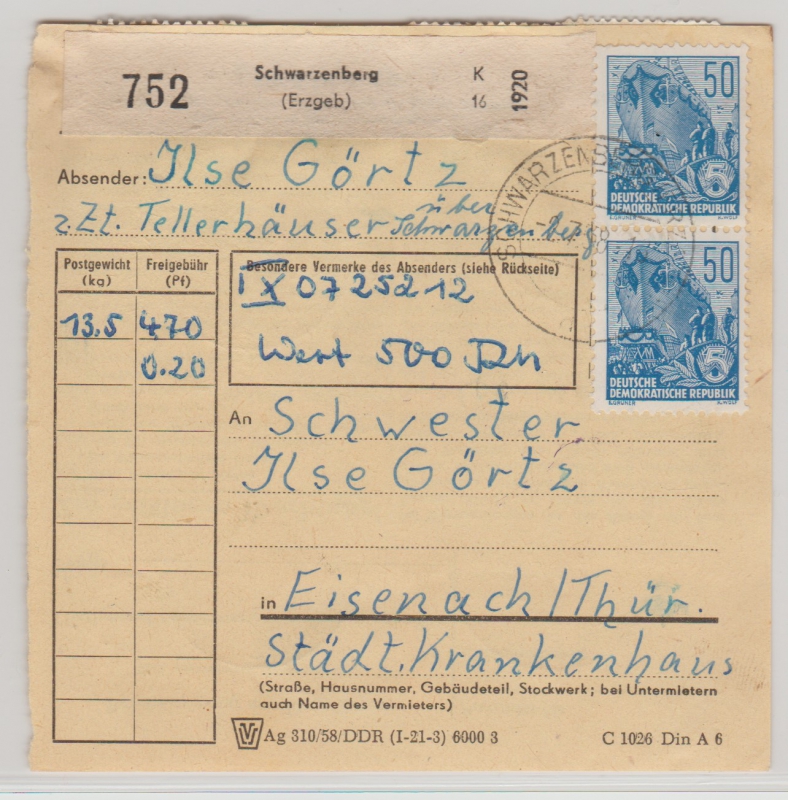 752
Schwarzenberg
(Erzgeb)
K
16
1920
50
DEUTSCHE
DEMOKRATISCHE REPUBLIK
E.GRUNER A.WOLF
Absender: Ilse Görtz
z.Zt. Tellerhäuser über Schwarzenberg
SCHWARZENB
Postgewicht
(kg)
Freigebühr
(Pf)
13.5 470
0.20
Besondere Vermerke des Absenders (siehe Rückseite)
IX 0725212
Wert 500 DM
50
5
DEUTSCHE
DEMOKRATISCHE REPUBLIK
E.GRUNER A.WOLF
An Schwester
Ilse Görtz
in Eisenach/Thür.
Städt. Krankenhaus
(Straße, Hausnummer, Gebäudeteil, Stockwerk; bei Untermietern
auch Name des Vermieters)
Ag 310/58/DDR (I-21-3) 6000 3
C 1026 Din A 6